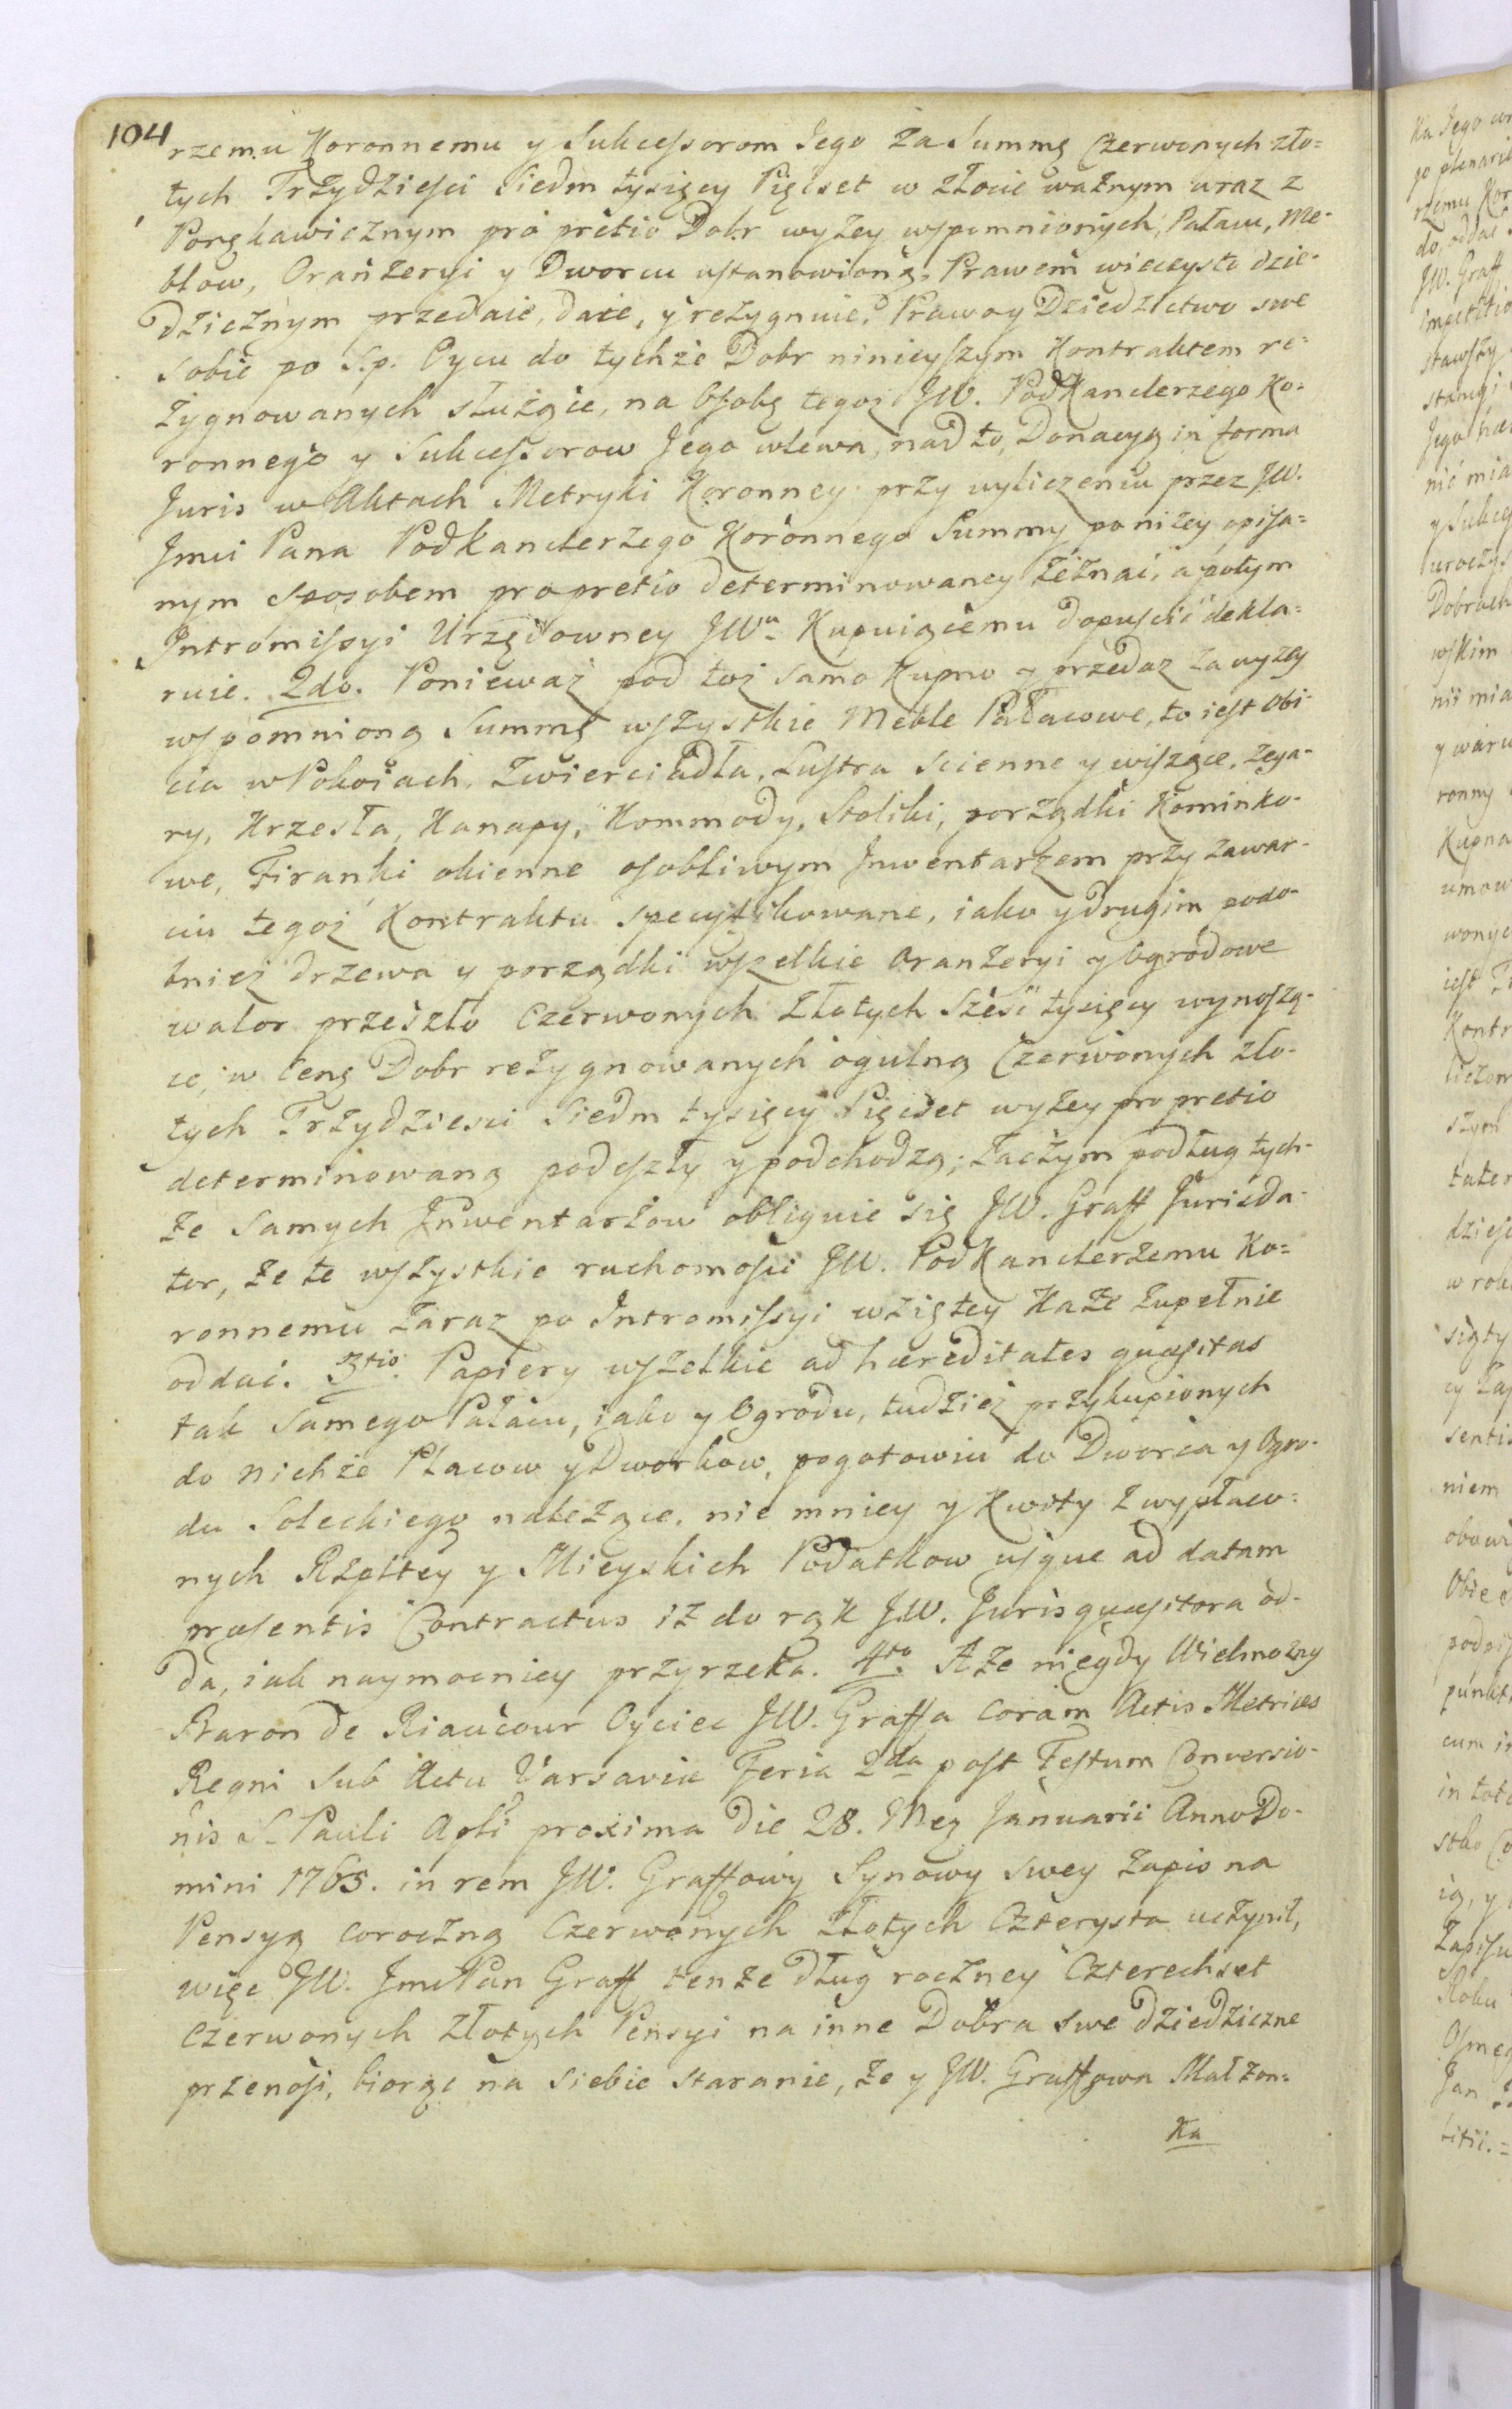 104
rzemu Koronnemu y Sukcessorom Jego za Summę Czerwonych zło=
tych Trzydzieści Siedm tysięcy Pięcset w złocie ważnym wraz z
Porękawicznym pro pretio Dobr wyżey wspomnionych, Pałacu, Me-
blow, Oranżeryi y Dworcu ustanowioną. Prawem wieczysto dzie-
dzicznym przedaie, daie, y rezygnuie. Prawo y Dziedzictwo swe
sobie po S.p. Oycu do tychże Dobr ninieyszym Kontraktem re-
zygnowanych służące, na Osobę tegoż JW. PodKanclerzego Ko-
ronnego y Sukcessorow Jego wlewa, nad to, Donacyą in forma
Juris w Aktach Metryki Koronney przy wyliczeniu przez JW.
Jmci Pana Podkanclerzego Koronnego Summy poniżey opisa=
nym sposobem pro pretio determinowaney zeznać, a potym
Intromissyi Urzędowney JWu Kupuiącemu dopuścić dekla=
ruie. 2do. Ponieważ pod toż samo Kupno y przedaż za wyżey
wspomnioną Summę wszystkie Meble Pałacowe, to iest Obi-
cia w Pokoiach, Zwierciadła, Lustra scienne y wiszące, Zega-
ry, Krzesła, Kanapy, Kommody, Stoliki, porządki Kominko-
we, Firanki okienne osobliwym Inwentarzem przy zawar-
ciu tegoż Kontraktu specyfikowane, iako y drugim podo-
bnież drzewa y porządki wszelkie Oranżeryi y Ogrodowe
walor przeszło Czerwonych Złotych Sześć tysięcy wynoszą-
ce, w cenę Dobr rezygnowanych ogulną Czerwonych zło-
tych Trzydzieści Siedm tysięcy Pięcset wyżey pro pretio
determinowaną podeszły y podchodzą; zaczym podług tych-
że samych Inwentarzow obliguie się JW. Graff Jurisda-
tor, że te wszystkie ruchomości JW. PodKanclerzemu Ko=
ronnemu zaraz po Intromissyi wziętey Każe zupełnie
oddać. 3tio. Papiery wszelkie ad hæreditates quæsitas
tak samego Pałacu, iako y Ogrodu, tudzież przykupionych
do nichże Placow y Dworkow, pogotowiu do Dworca y Ogro-
du Soleckiego należące, nie mniey y Kwity z wypłaco-
nych Rzpltey y Mieyskich Podatkow usque ad datam
præsentis Contractus iż do rąk JW. Jurisquæsitora od-
da, iak naymocniey przyrzeka. 4to. A że niegdy Wielmożny
Baron de Riaucour Oyciec JW. Graffa coram Actis Metrices
Regni sub Actu Varsaviæ Feria 2da post Festum Conversio-
nis S. Pauli Apli proxima die 28. Msq Januarii Anno Do-
mini 1765. in rem JW. Graffowy Synowy swey Zapis na
Pensyą coroczną Czerwonych Złotych Czterysta uczynił,
więc JW. Jmc Pan Graff tenże dług roczney Czterechset
Czerwonych Złotych Pensyi na inne Dobra swe dziedziczne
przenosi, biorąc na siebie staranie, że y JW. Graffowa Małżon=
Ka